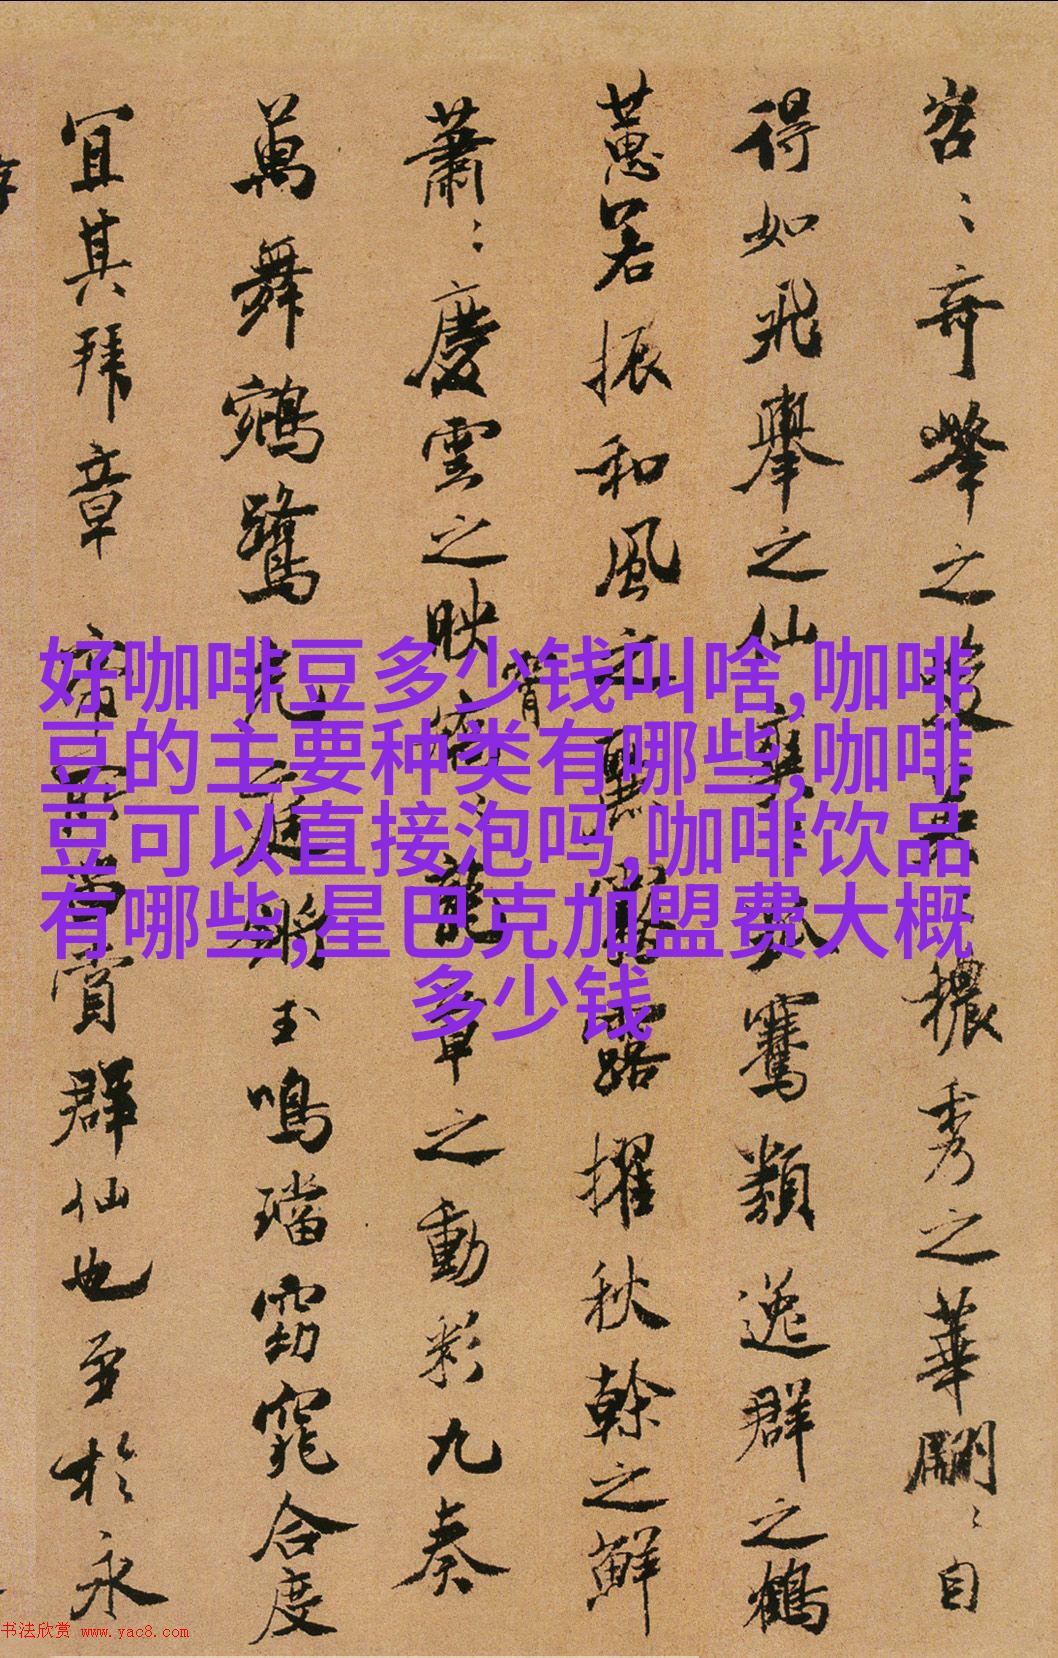 岧〻奇峯之峻穠秀之華翩〻自
得如飛舉之仙騫類逸群之鶴
蕙若振和風之麗露擢秋幹之鮮
蕭〻慶雲之映霄龍章之動彩九奏
萬舞鵷鷺充庭鏘玉鳴璫窈窕合度
宜其拜章帝賞群仙也至於永
好咖啡豆多少钱叫啥,咖啡
豆的主要种类有哪些,咖啡
豆可以直接泡吗,咖啡饮品
有哪些,星巴克加盟费大概
多少钱
书法欣赏 www.yac8.com